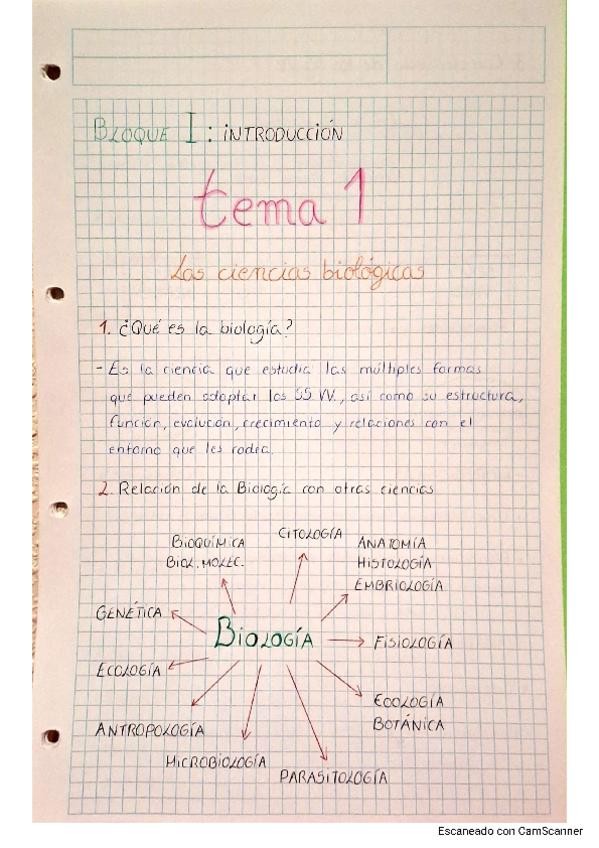 BLOQUE I: INTRODUCCIÓN
tema 1
Las ciencias biológicas
1. ¿Qué es la biología?
- Es la ciencia que estudia las múltiples formas
que pueden adoptar los SS VV., así como su estructura,
función, evolución, crecimiento y relaciones con el
entorno que les rodea.
2. Relación de la Biología con otras ciencias
CITOLOGÍA
BIOQUÍMICA
BIOL. MOLEC.
ANATOMÍA
HISTOLOGÍA
EMBRIOLOGÍA
GENÉTICA
BIOLOGÍA
FISIOLOGÍA
ECOLOGÍA
ZOOLOGÍA
BOTÁNICA
ANTROPOLOGÍA
MICROBIOLOGÍA
PARASITOLOGÍA
Escaneado con CamScanner